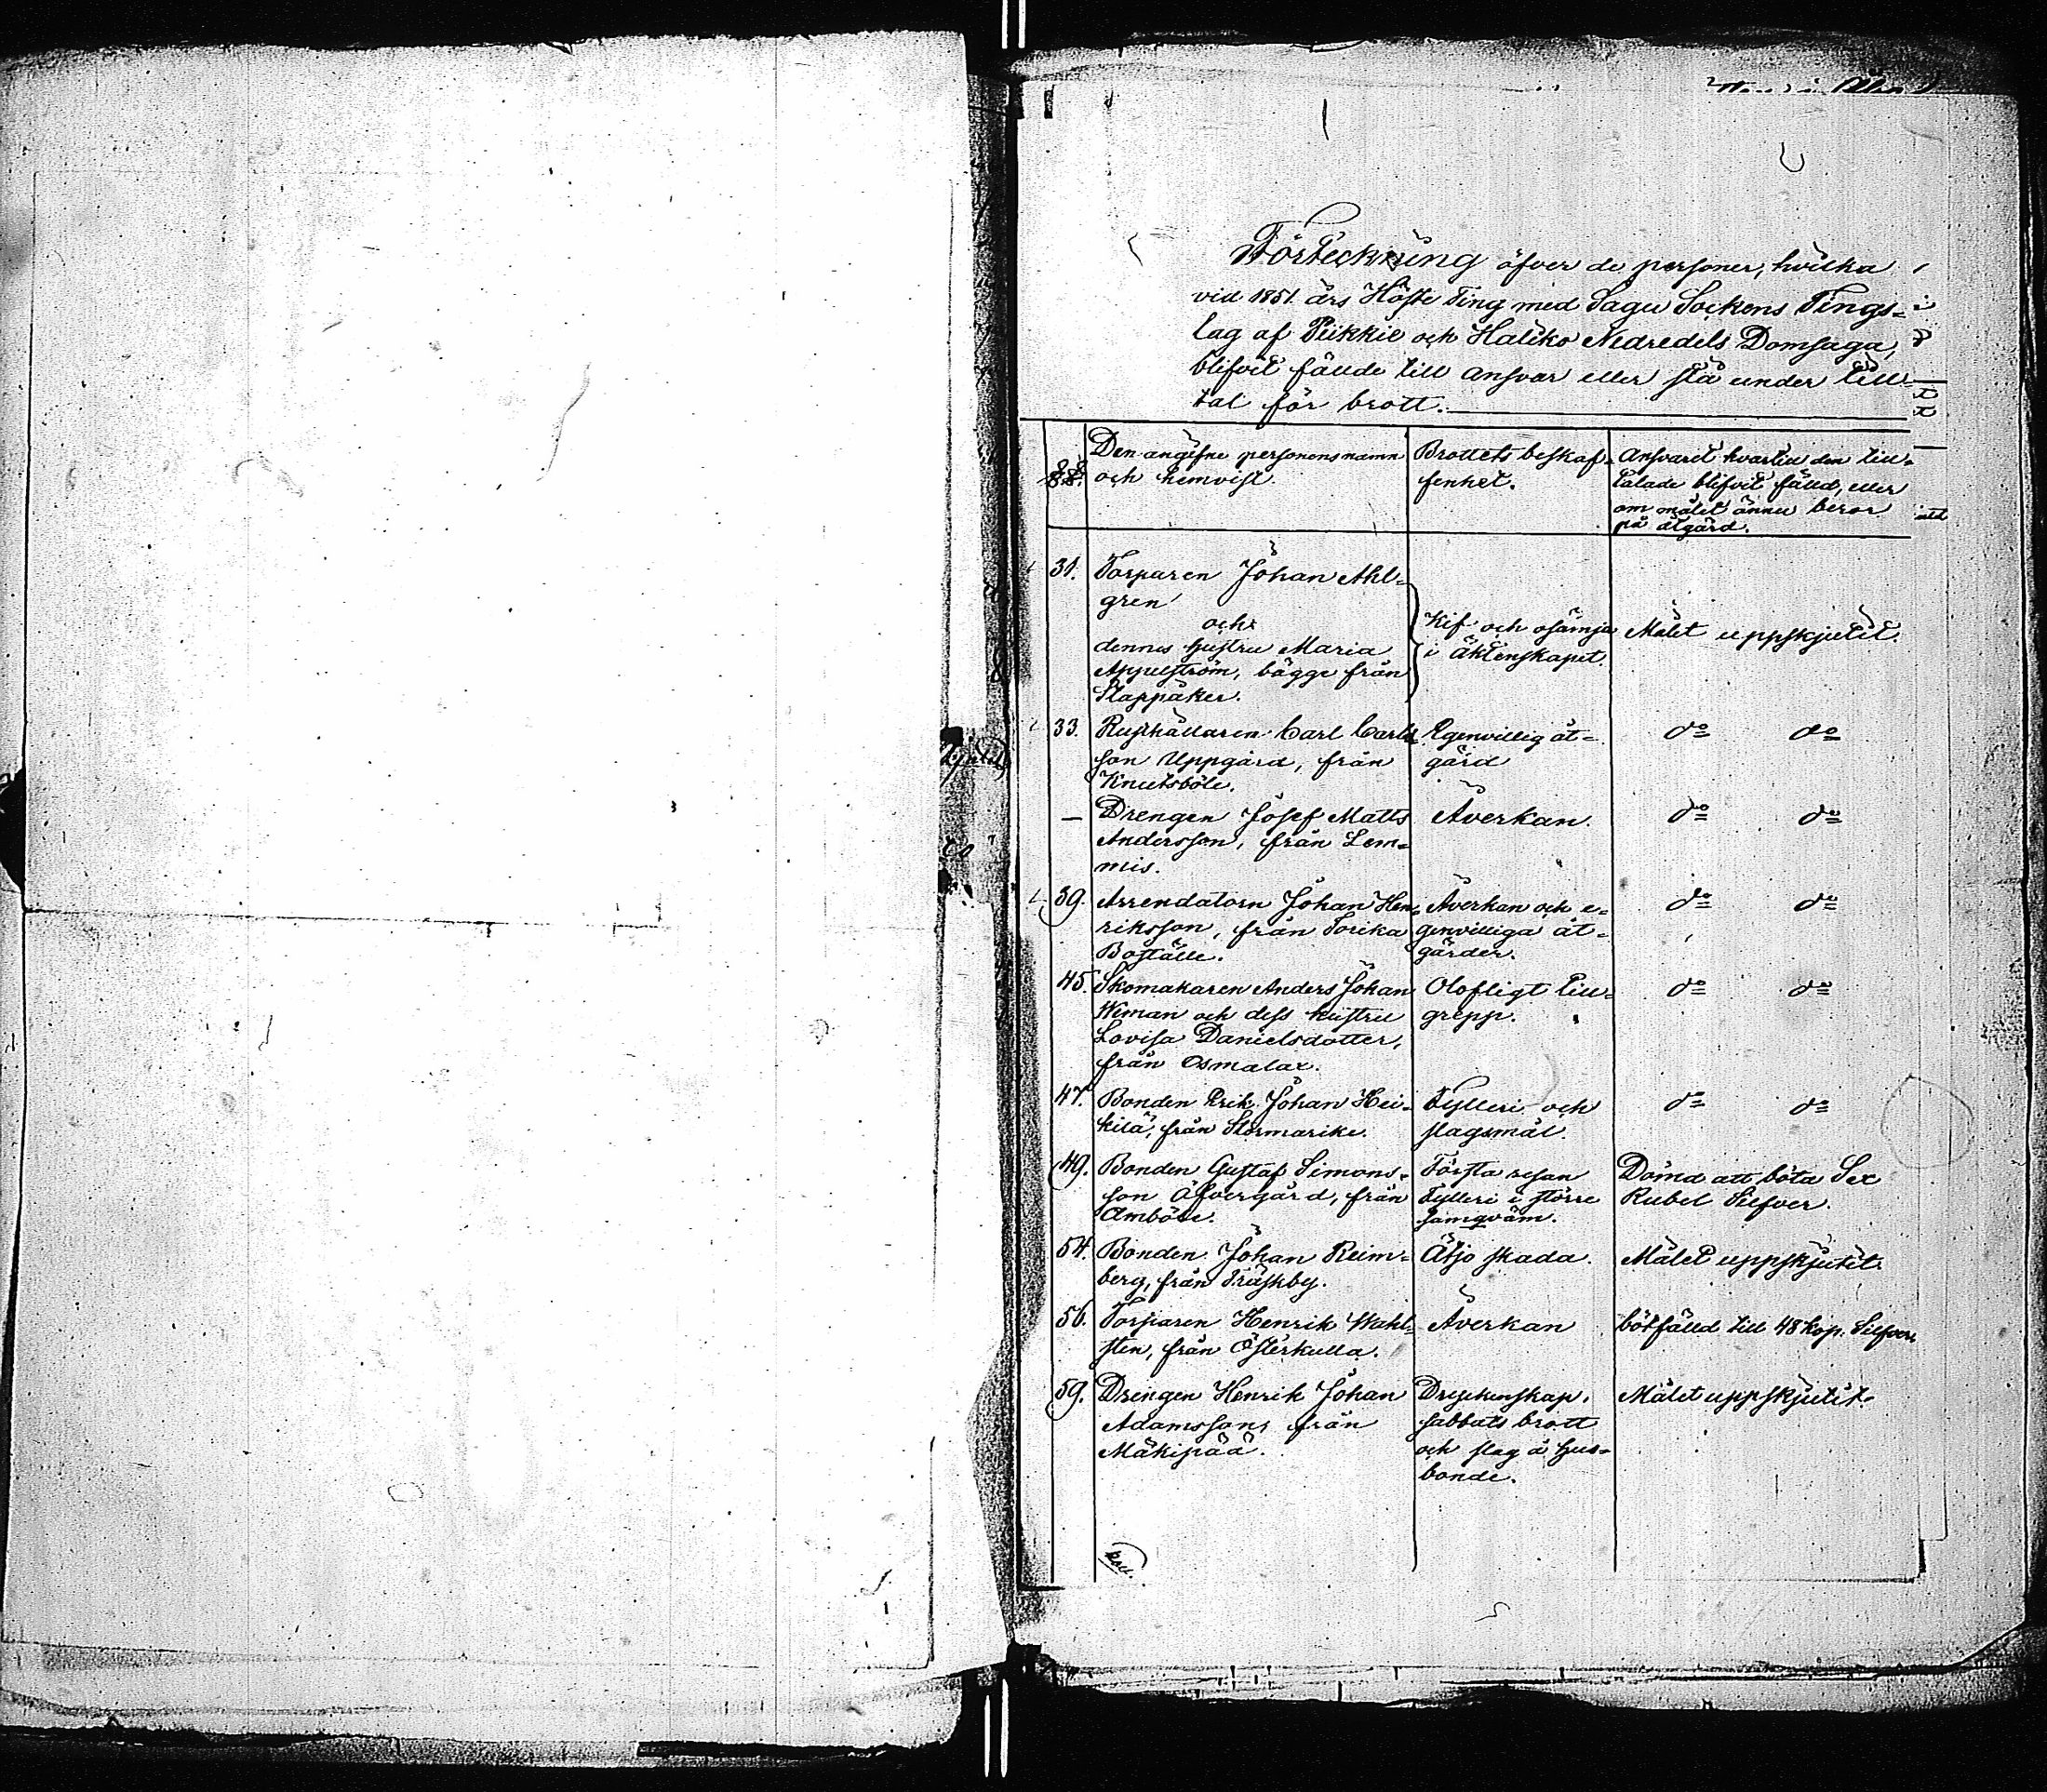 Förteckning öfver de personer, hvilka
vid 1851 års Höste Ting med Sagu Sockens Tings-
lag af Piikkie och Haliko Nedredels Domsaga,
blifvit fällde till ansvar eller stå under till-
tal för brott.
§§. Den angifne personens namn och hemvist.
Brottets beskaf-
fenhet.
Ansvaret hvartill den till-
talade blifvit fälld, eller
om målet ännu beror
på åtgärd.
31. Torparen Johan Ahl-
gren
och
dennes hustru Maria
Appelström, bägge från
Slappåker.
Kif och osämja
i äktenskapet.
Målet uppskjutit.
33. Rusthållaren Carl Carls-
son Uppgård, från
Knutsböle.
Egenvillig åt-
gärd
do do
— Drengen Josef Matts
Andersson, från Lem-
mis.
Åverkan.
do do
39. Arrendatorn Johan Hen-
riksson, från Torika
Boställe.
Åverkan och e-
genvilliga åt-
gärder.
do do
45. Skomakaren Anders Johan
Weman och dess hustru
Lovisa Danielsdotter,
från Osmalax.
Olofligt till-
grepp.
do do
47. Bonden Erik Johan Hei-
kilä, från Stormarike.
Fylleri och
slagsmål.
do do
49. Bonden Gustaf Simons-
son Öfvergård, från
Amböle.
Första resan
Fylleri i större
samqväm.
Dömd att böta Sex
Rubel Silfver.
54. Bonden Johan Reim-
berg, från Träskby.
Åtjo skada.
Målet uppskjutit.
56. Torparen Henrik Wahl-
sten, från Österkulla.
Åverkan
bötfälld till 48 kop. Silfver
59. Drengen Henrik Johan
Adamsson, från
Mäkipää.
Dryckenskap,
sabbats brott
och slag å hus-
bonde.
Målet uppskjutit.